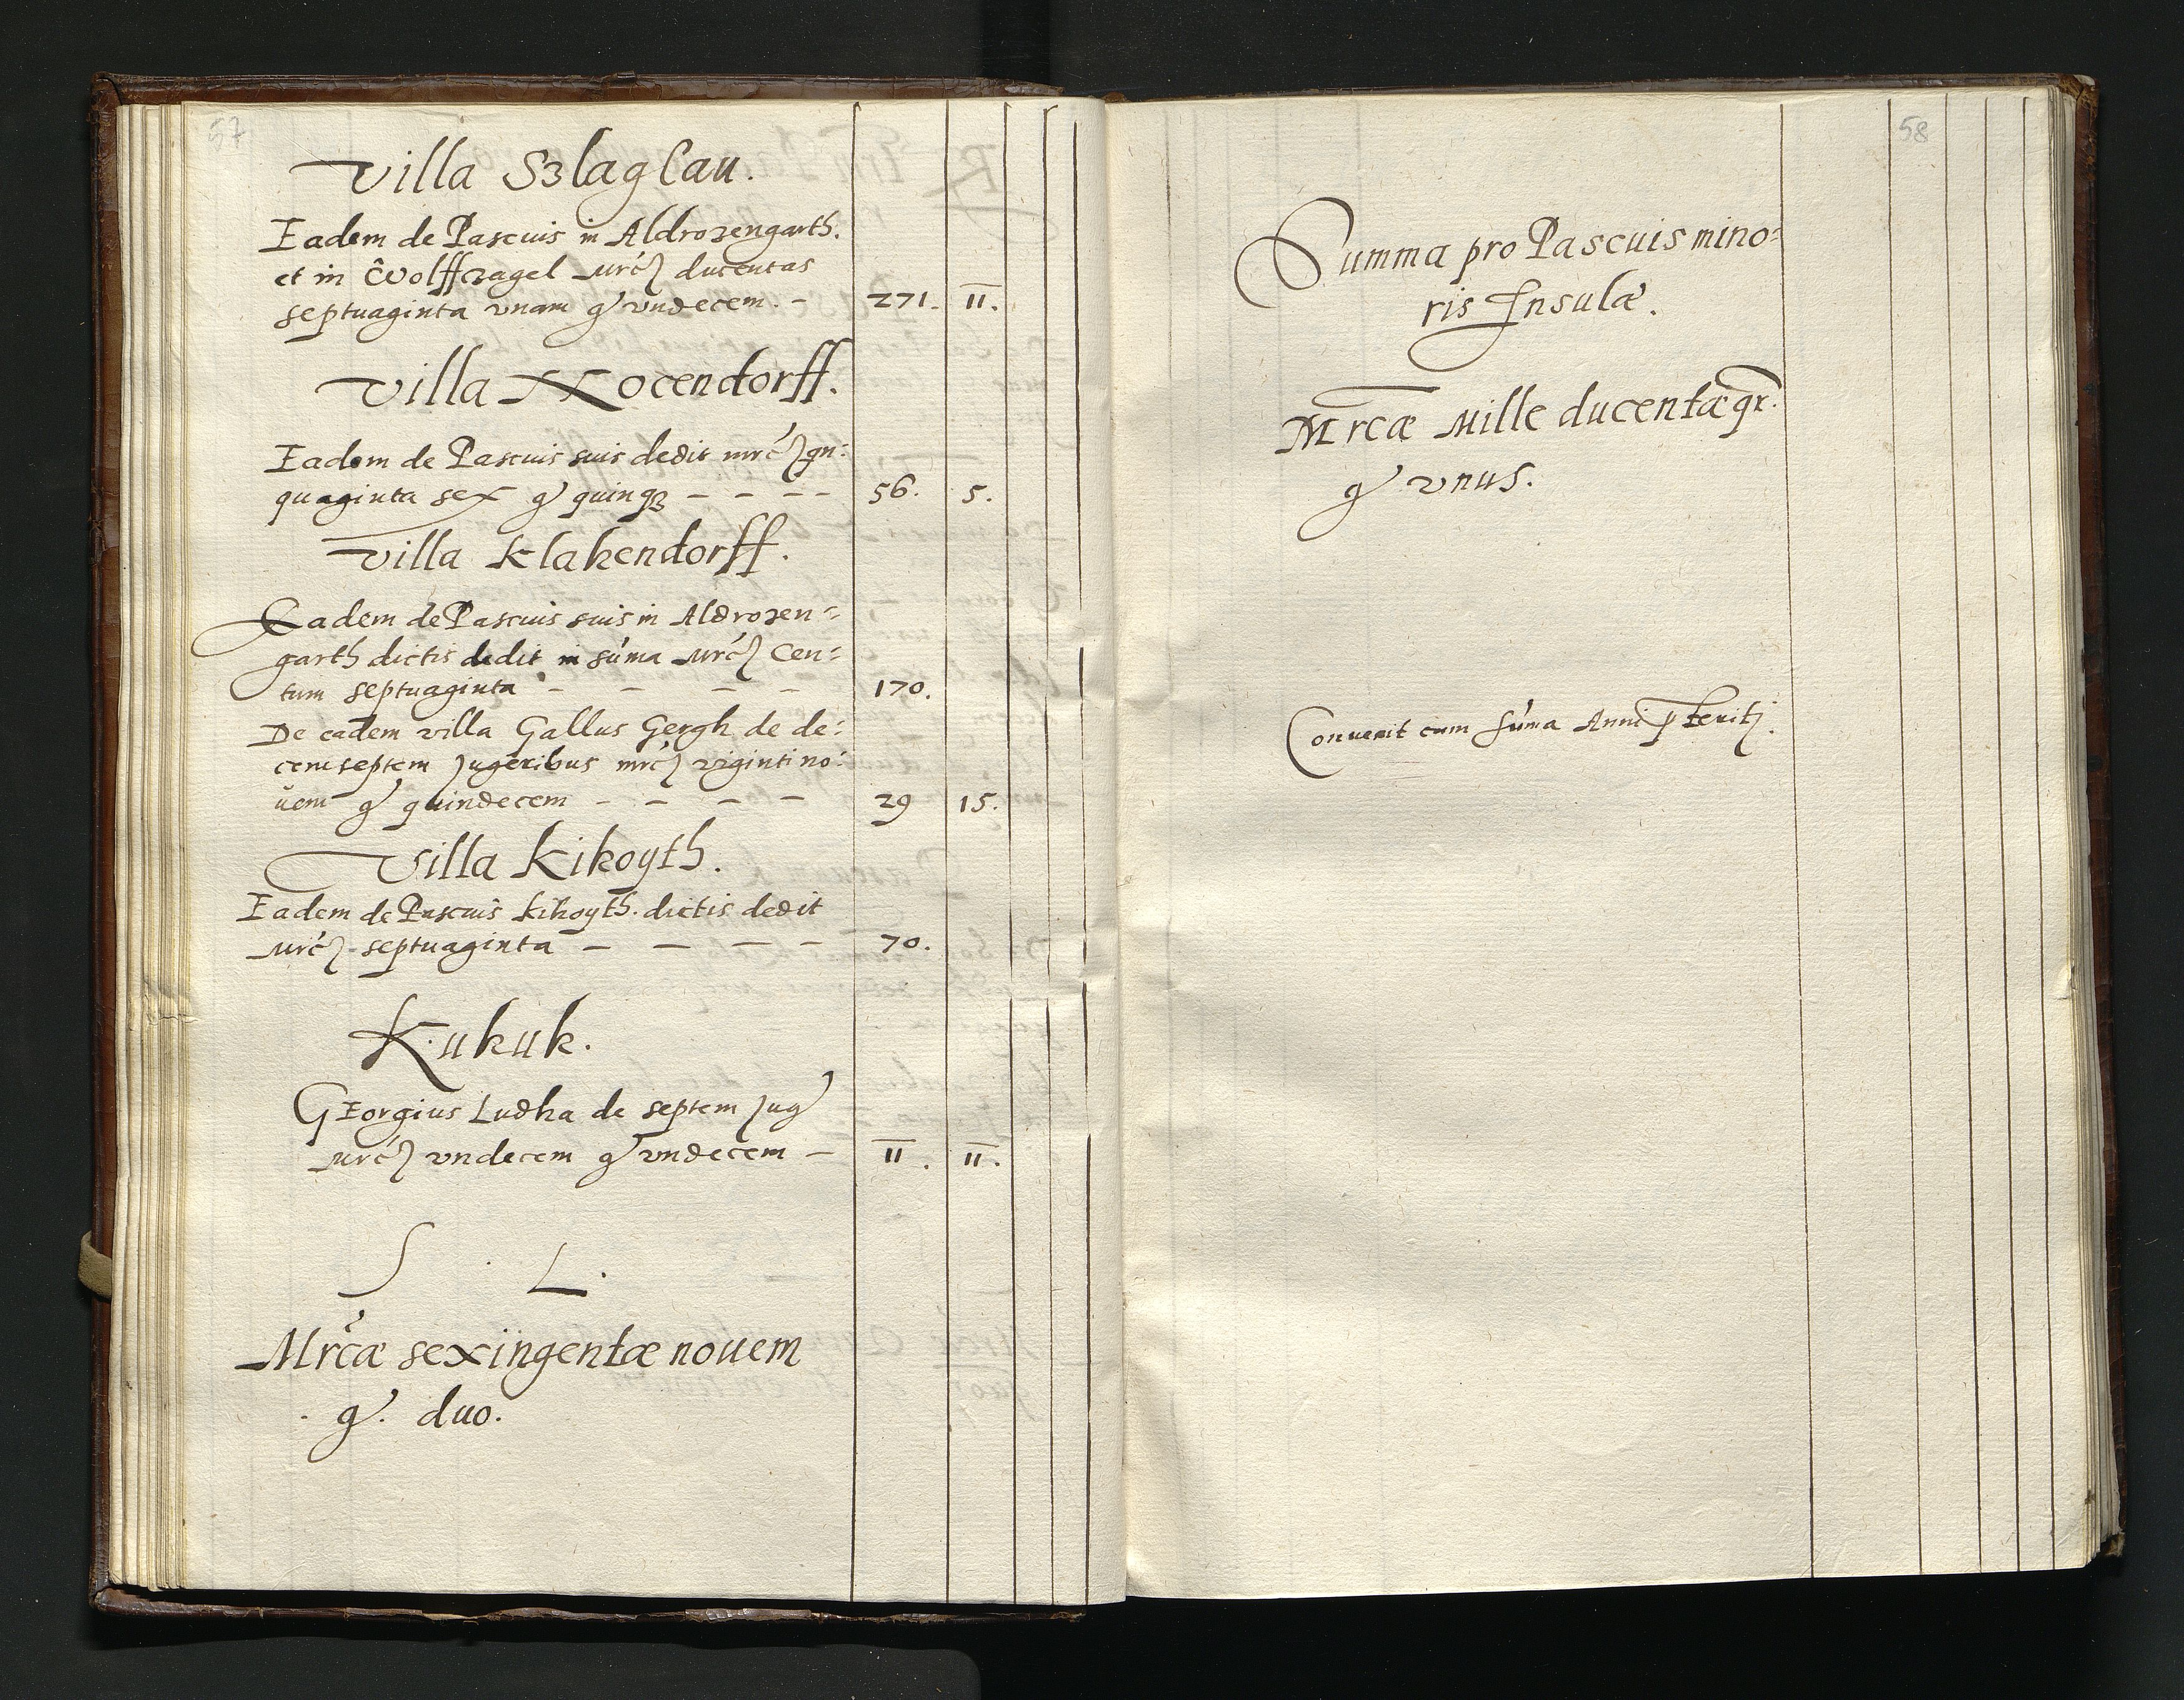 57
Villa Szlaglau.
Eadem de Pascuis in Aldrozengarth.
et in Wolffzagel mrć ducentas
septuaginta vnam g vndecem. - 271. 11.
Villa Nocendorff.
Eadem de Pascuis suis dedit mrć qn:
quaginta sex g quinqz - - - - 56. 5.
Villa Klakendorff.
Eadem de Pascuis suis in Aldrozen=
garth dictis dedit in suma mrć Cen=
tum septuaginta - - - - 170.
De eadem villa Gallus Gergh de de:
cem septem Jugeribus mrć viginti no:
uem g quindecem - - - - 29 15.
Villa Kikoyth.
Eadem de Pascuis Kikoyth. dictis dedit
mrć septuaginta - - - - 70.
Kukuk.
Georgius Ludka de septem Jug
mrć vndecem g vndecem - 11. 11.
S . L.
Mrcæ sexingentæ nouem
. g. duo.
58
Summa pro Pascuis mino=
ris Insulæ.
Mrcæ Mille ducentæ gr.
g vnus.
Conuenit cum suma Anni pteritj.